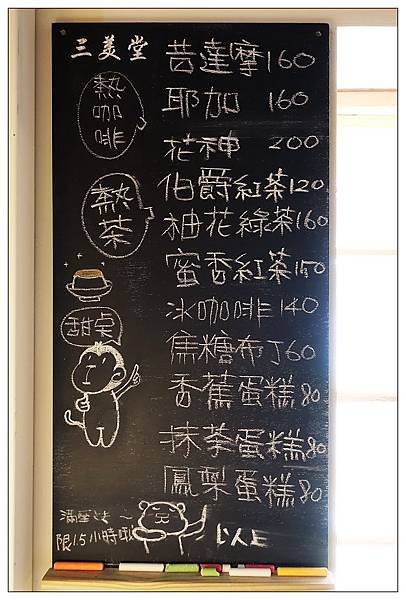 三美堂
熱咖啡
苔達摩 160
耶加 160
花神 200
熱茶
伯爵紅茶 120
柚花綠茶 160
蜜香紅茶 150
冰咖啡 140
甜桌
焦糖布丁 60
香蕉蛋糕 80
抹茶蛋糕 80
鳳梨蛋糕 80
限1.5小時哦
以上